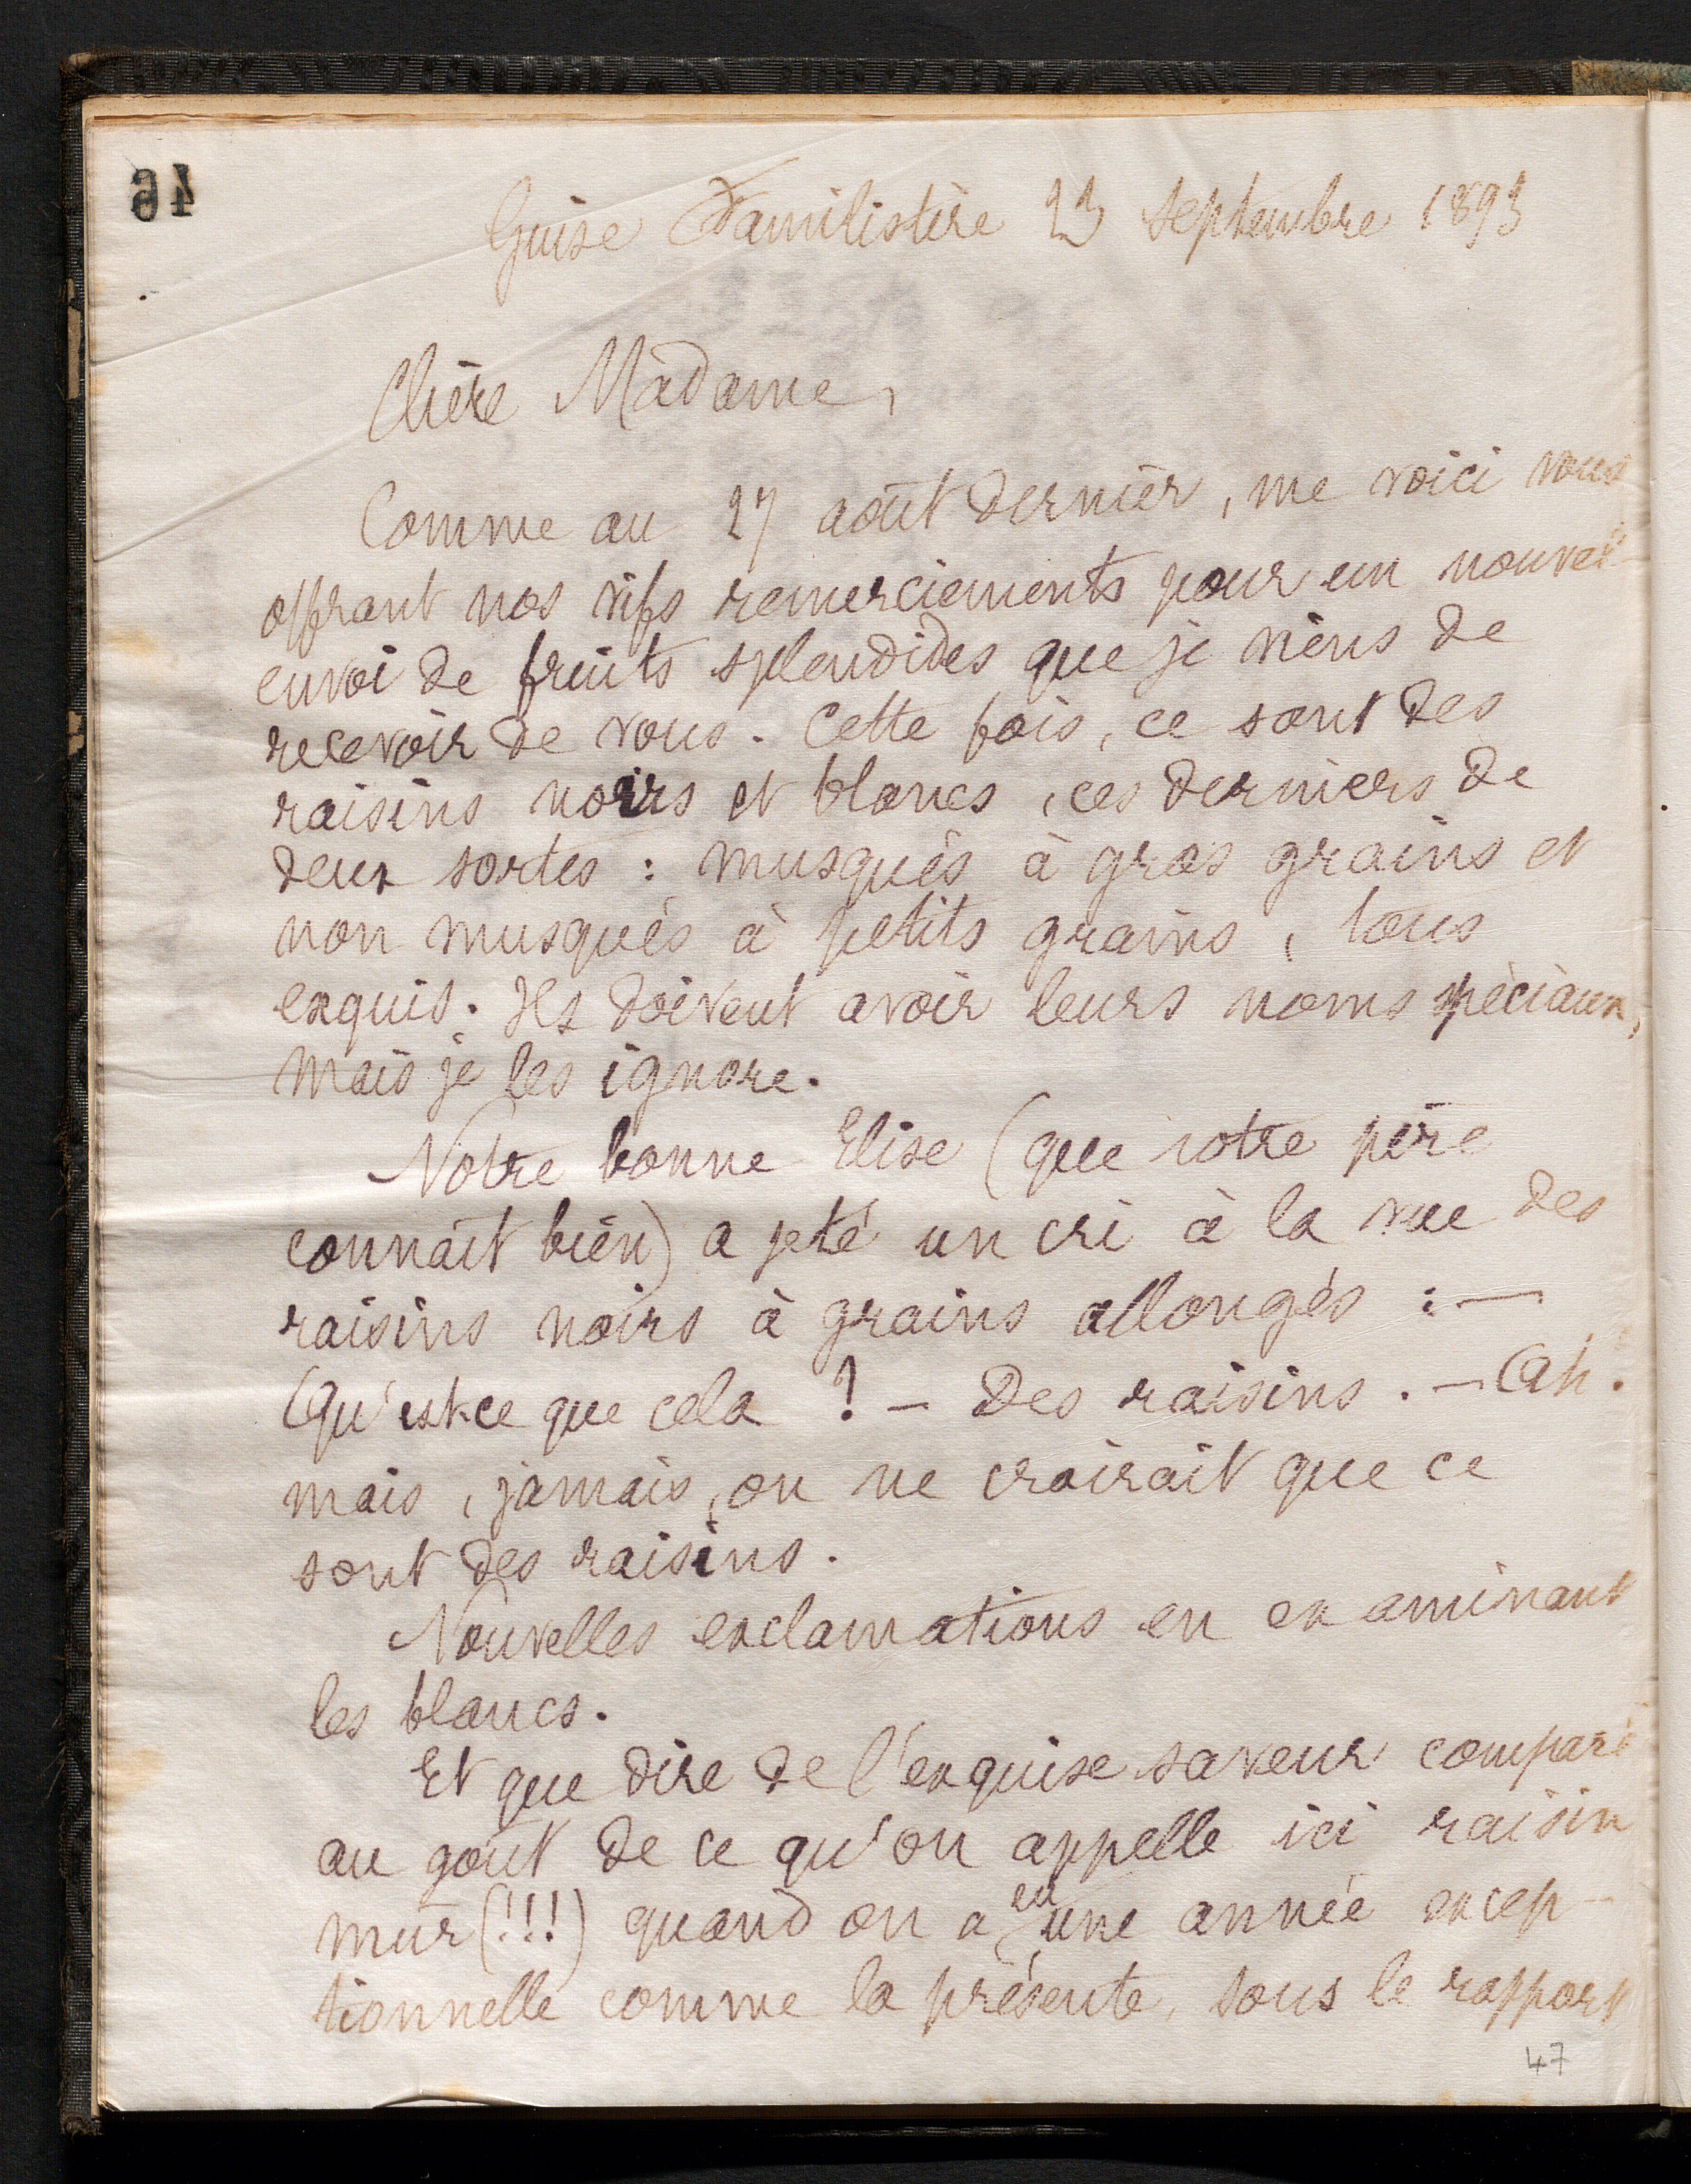 46
Guise Familistère 23 septembre 1893
Chère Madame,
Comme au 27 août dernier, me voici vous
offrant nos vifs remerciements pour un nouvel
envoi de fruits splendides que je viens de
recevoir de vous. Cette fois, ce sont des
raisins noirs et blancs, ces derniers de
deux sortes : musqués à gros grains et
non musqués à petits grains, tous
exquis. Ils doivent avoir leurs noms spéciaux,
mais je les ignore.
Notre bonne Elise (que votre père
connaît bien) a jeté un cri à la vue des
raisins noirs à grains allongés : —
Qu'est-ce que cela ? — Des raisins. — Ah.
mais, jamais, on ne croirait que ce
sont des raisins.
Nouvelles exclamations en examinant
les blancs.
Et que dire de l'exquise saveur comparé
au goût de ce qu'on appelle ici raisin
mûr (!!!) quand on a eu une année excep-
tionnelle comme la présente, sous le rapport
47